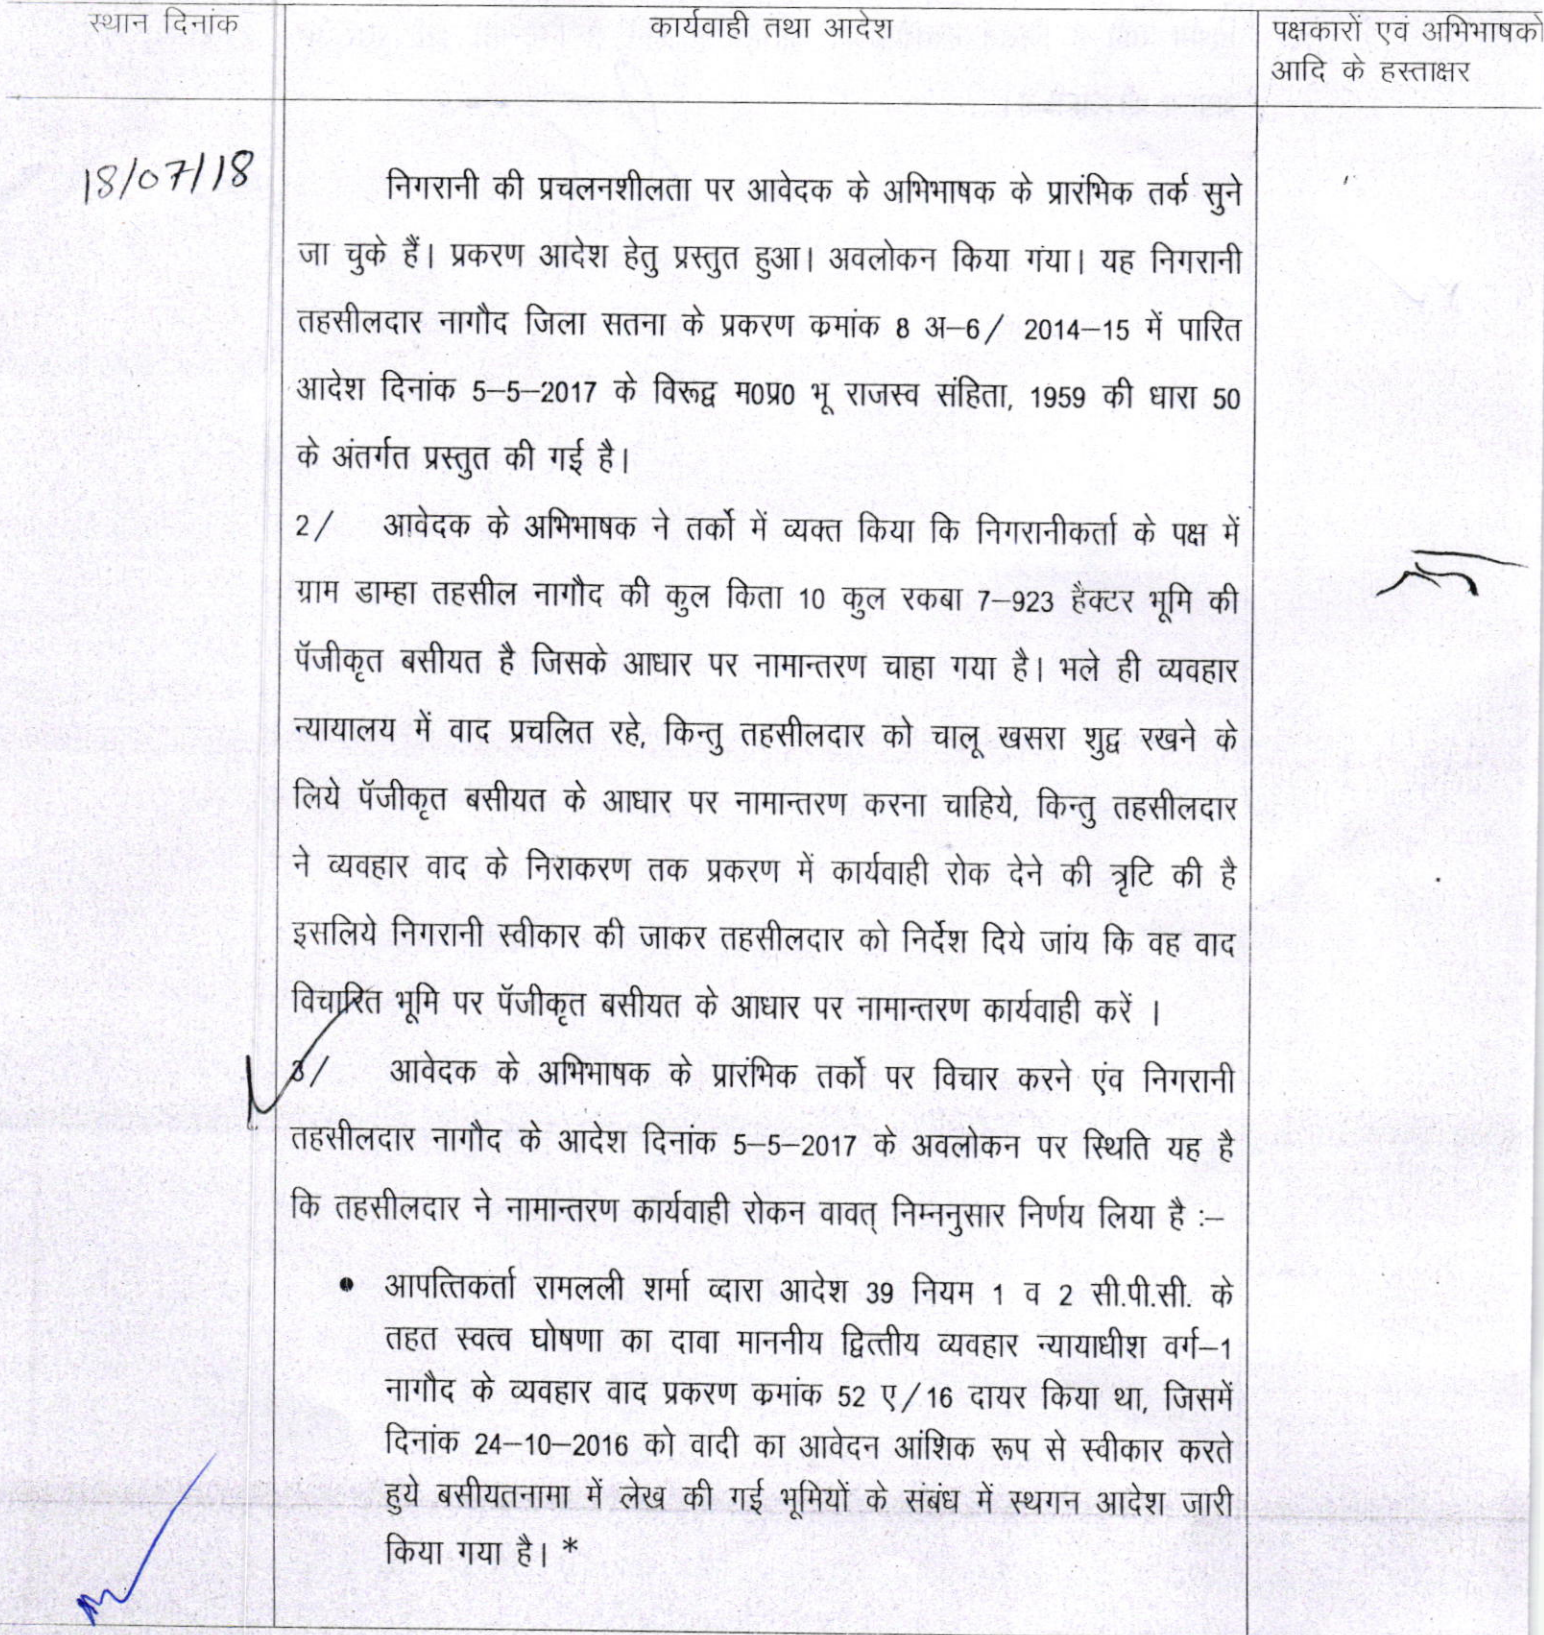 स्थान दिनांक
कार्यवाही तथा आदेश
पक्षकारों एवं अभिभाषको
आदि के हस्ताक्षर
18/07/18
निगरानी की प्रचलनशीलता पर आवेदक के अभिभाषक के प्रारंभिक तर्क सुने
जा चुके हैं। प्रकरण आदेश हेतु प्रस्तुत हुआ। अवलोकन किया गया। यह निगरानी
तहसीलदार नागौद जिला सतना के प्रकरण कमांक 8 अ–6/ 2014–15 में पारित
आदेश दिनांक 5–5–2017 के विरूद्व म0प्र0 भू राजस्व संहिता, 1959 की धारा 50
के अंतर्गत प्रस्तुत की गई है।
2/ आवेदक के अभिभाषक ने तर्को में व्यक्त किया कि निगरानीकर्ता के पक्ष में
ग्राम डाम्हा तहसील नागौद की कुल किता 10 कुल रकबा 7–923 हैक्टर भूमि की
पॅजीकृत बसीयत है जिसके आधार पर नामान्तरण चाहा गया है। भले ही व्यवहार
न्यायालय में वाद प्रचलित रहे, किन्तु तहसीलदार को चालू खसरा शुद्व रखने के
लिये पॅजीकृत बसीयत के आधार पर नामान्तरण करना चाहिये, किन्तु तहसीलदार
ने व्यवहार वाद के निराकरण तक प्रकरण में कार्यवाही रोक देने की त्रृटि की है
इसलिये निगरानी स्वीकार की जाकर तहसीलदार को निर्देश दिये जांय कि वह वाद
विचारित भूमि पर पॅजीकृत बसीयत के आधार पर नामान्तरण कार्यवाही करें ।
3/ आवेदक के अभिभाषक के प्रारंभिक तर्को पर विचार करने एंव निगरानी
तहसीलदार नागौद के आदेश दिनांक 5–5–2017 के अवलोकन पर स्थिति यह है
कि तहसीलदार ने नामान्तरण कार्यवाही रोकन वावत् निम्ननुसार निर्णय लिया है :–
• आपत्तिकर्ता रामलली शर्मा व्दारा आदेश 39 नियम 1 व 2 सी.पी.सी. के
तहत स्वत्व घोषणा का दावा माननीय द्वित्तीय व्यवहार न्यायाधीश वर्ग–1
नागौद के व्यवहार वाद प्रकरण कमांक 52 ए/16 दायर किया था, जिसमें
दिनांक 24–10–2016 को वादी का आवेदन आंशिक रूप से स्वीकार करते
हुये बसीयतनामा में लेख की गई भूमियों के संबंध में स्थगन आदेश जारी
किया गया है। *